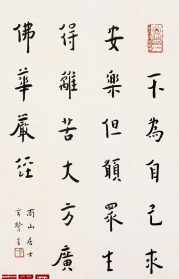 不為自己求
安樂但願眾生
得離苦大方廣
佛華嚴經
蜀山居士